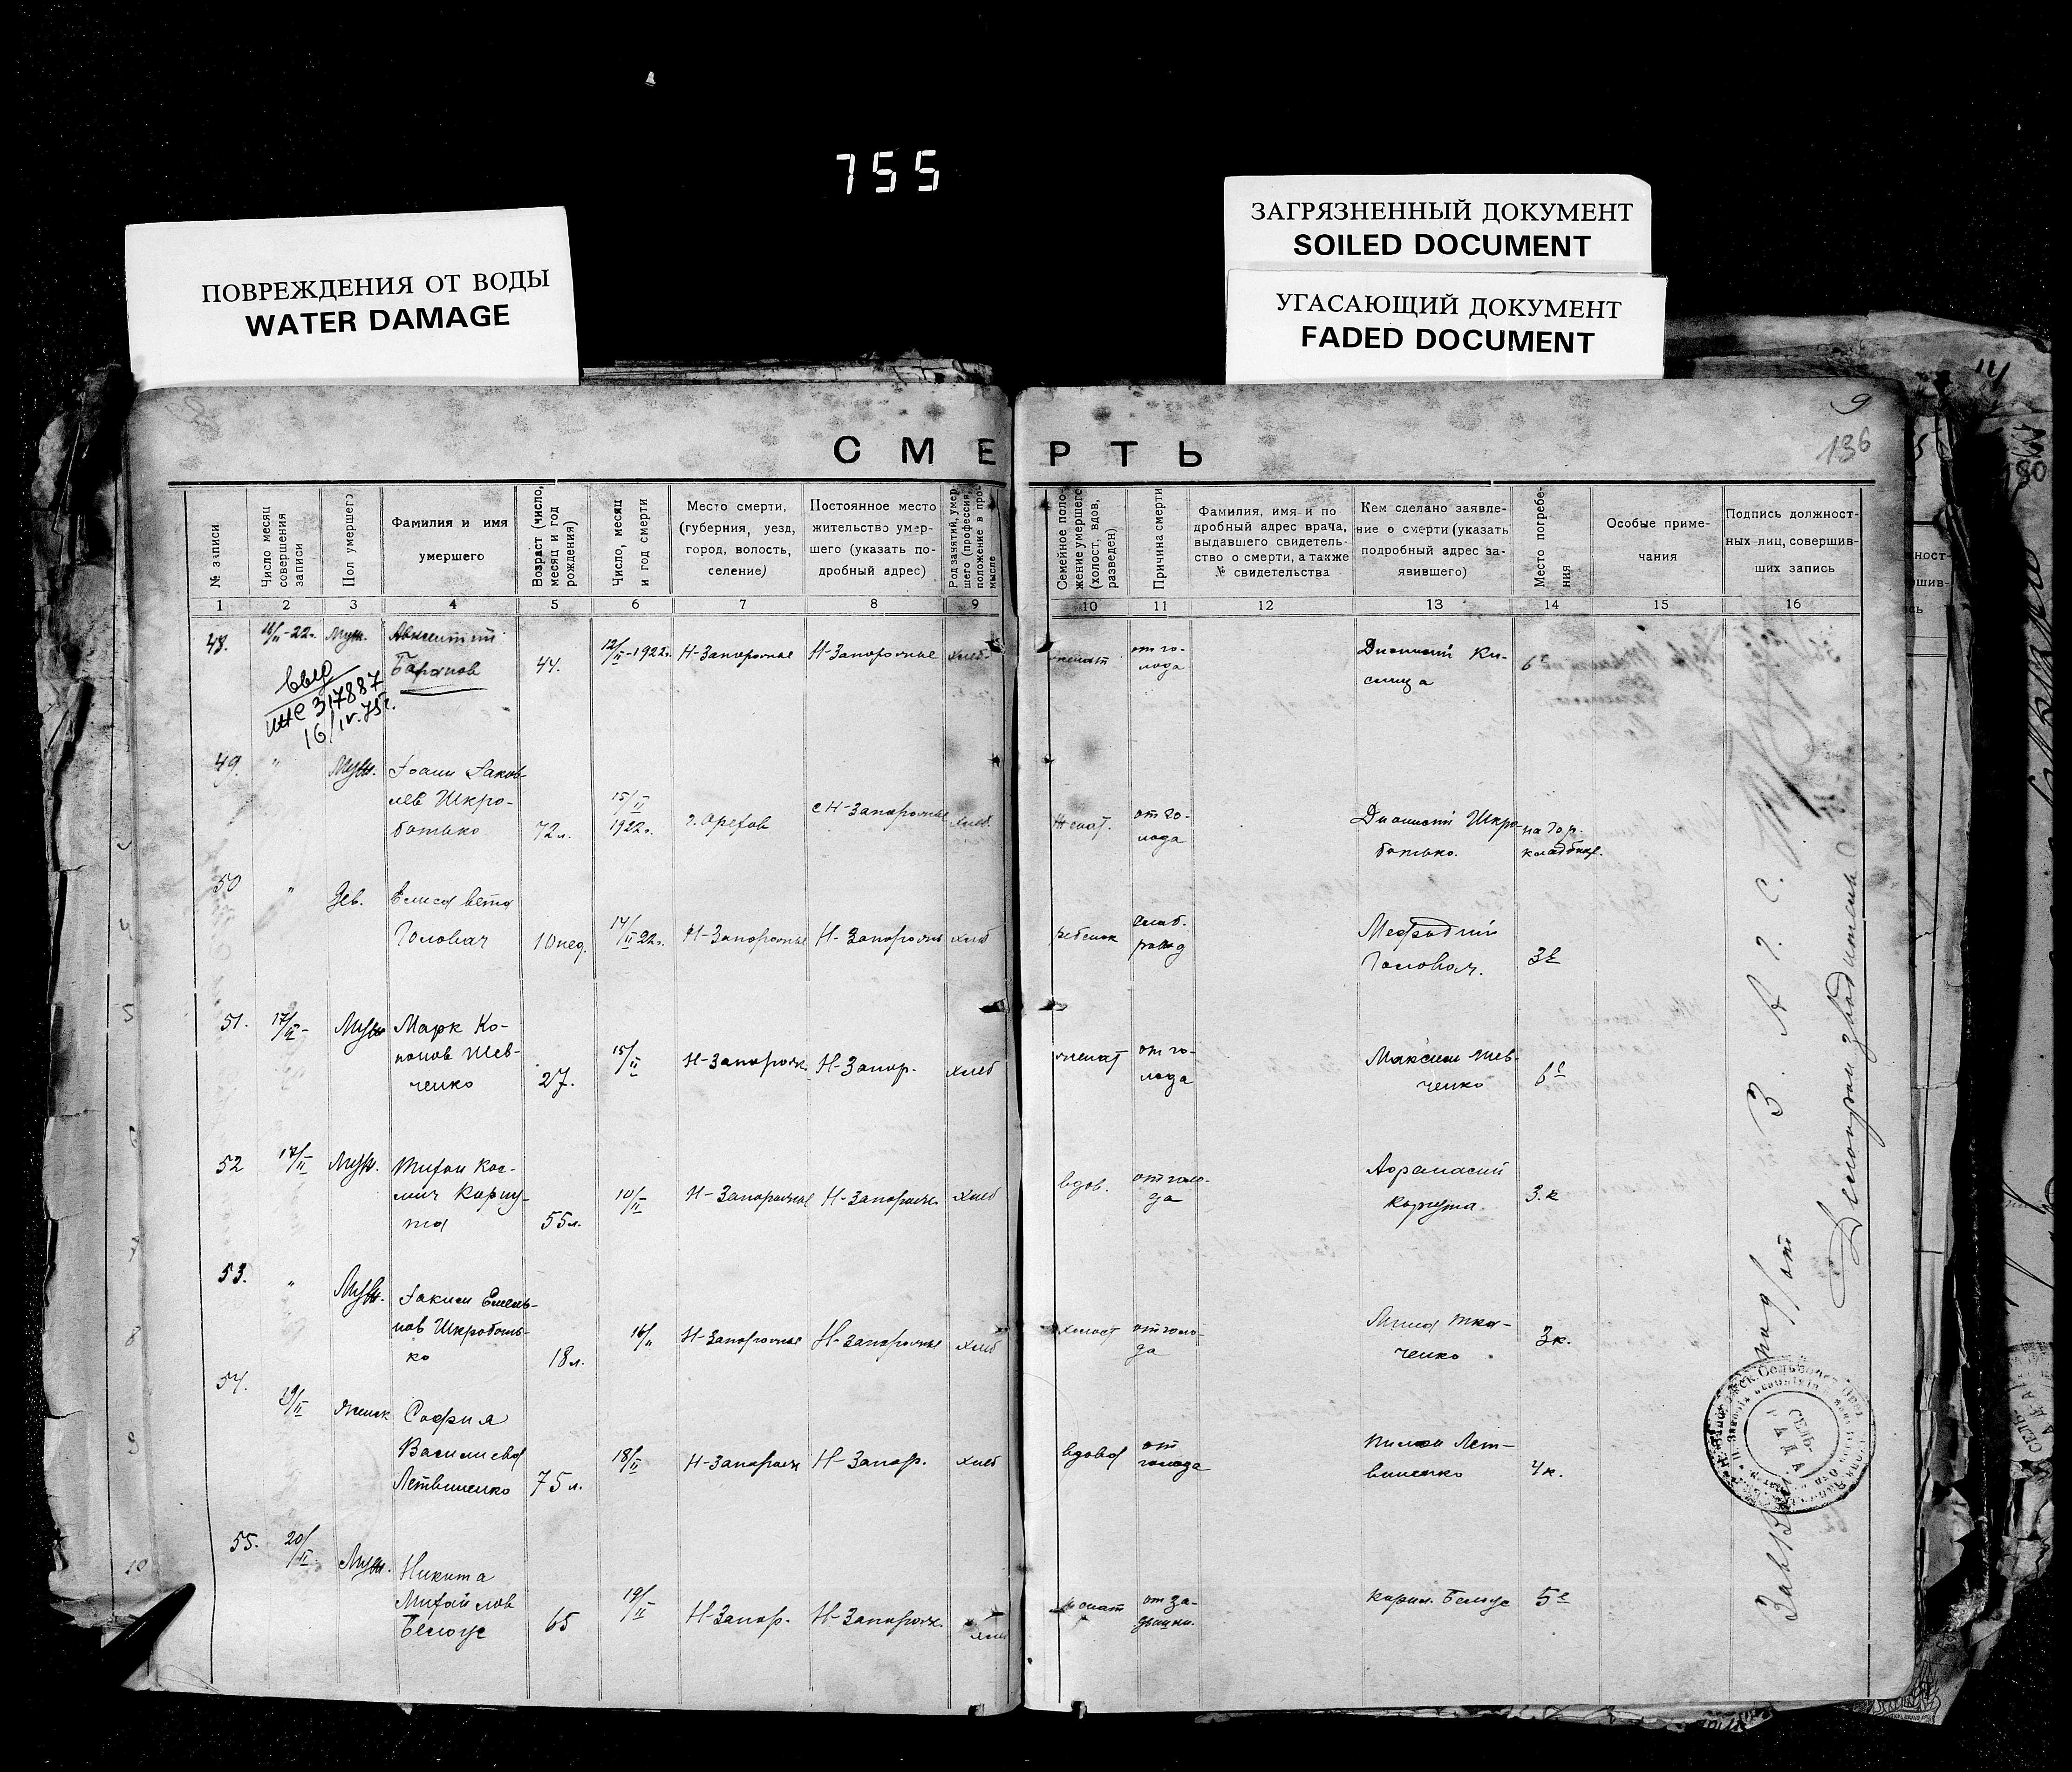 755
ПОВРЕЖДЕНИЯ ОТ ВОДЫ
WATER DAMAGE
ЗАГРЯЗНЕННЫЙ ДОКУМЕНТ
SOILED DOCUMENT
УГАСАЮЩИЙ ДОКУМЕНТ
FADED DOCUMENT
9
136
СМЕРТЬ
№ записи
Число месяц
совершения
записи
Пол умершего
Фамилия и имя
умершего
Возраст (число,
месяц и год
рождения)
Число, месяц
и год смерти
Место смерти,
(губерния, уезд,
город, волость,
селение)
Постоянное место
жительство умер-
шего (указать по-
дробный адрес)
Род занятий, умер-
шего (профессия,
положение в про-
мысле
Семейное поло-
жение умершего
(холост, вдов,
разведен)
Причина смерти
Фамилия, имя и по
дробный адрес врача,
выдавшего свидетель-
ство о смерти, а также
№ свидетельства
Кем сделано заявле-
ние о смерти (указать
подробный адрес за-
явившего)
Место погребе-
ния
Особые приме-
чания
Подпись должност-
ных лиц, совершив-
ших запись
1 2 3 4 5 6 7 8 9 10 11 12 13 14 15 16
48. Муж.
Баранов
44.
12/II-1922г.
Н-Запорожье
Н-Запорожье
хлеб
женат
от го-
лода
317887
49. " Муж.
Шкро-
ботько
72л.
15/II
1922г.
г. Орехов
с Н-Запорожье
хлеб.
женат.
от го-
лода
Шкро-
ботько.
на гор.
кладбищ.
50 " Дев.
Елисавета
Головач
10 нед.
14/II 22г.
Н-Запорожье
Н-Запорожье
хлеб
ребенок
слаб.
рожд
Мефодий
Головач.
51. 17/II- Муж
Марк Ко-
нонов Шев-
ченко
27.
15/II
Н-Запорож.
Н-Запор.
хлеб
женат
от го-
лода
Максим Шев-
ченко
52 17/II Муж.
Тихон Кос-
мич Коржу-
та
55л.
10/II
Н-Запорожье
Н-Запорож.
хлеб
вдов.
от голо-
да
Афанасий
Коржута.
3.к
53. " Муж.
Иаким Емель-
нов Шкроботь-
ко
18л.
16/II
Н-Запорожье
Н-Запорожье
хлеб
холост
от голо-
да
Тка-
ченко
3к.
54. 19/II Женск
София
Васильева
Летвиненко
75л.
18/II
Н-Запорож
Н-Запор.
хлеб
вдова
от
голода
Лет-
виненко
4к.
55. 20/II Муж.
Никита
Михайлов
Белоус
65
19/II
Н-Запор.
Н-Запорож.
хлеб
женат
от за-
дышки.
Белоус
З. А. Г. С.
Делопроизводитель